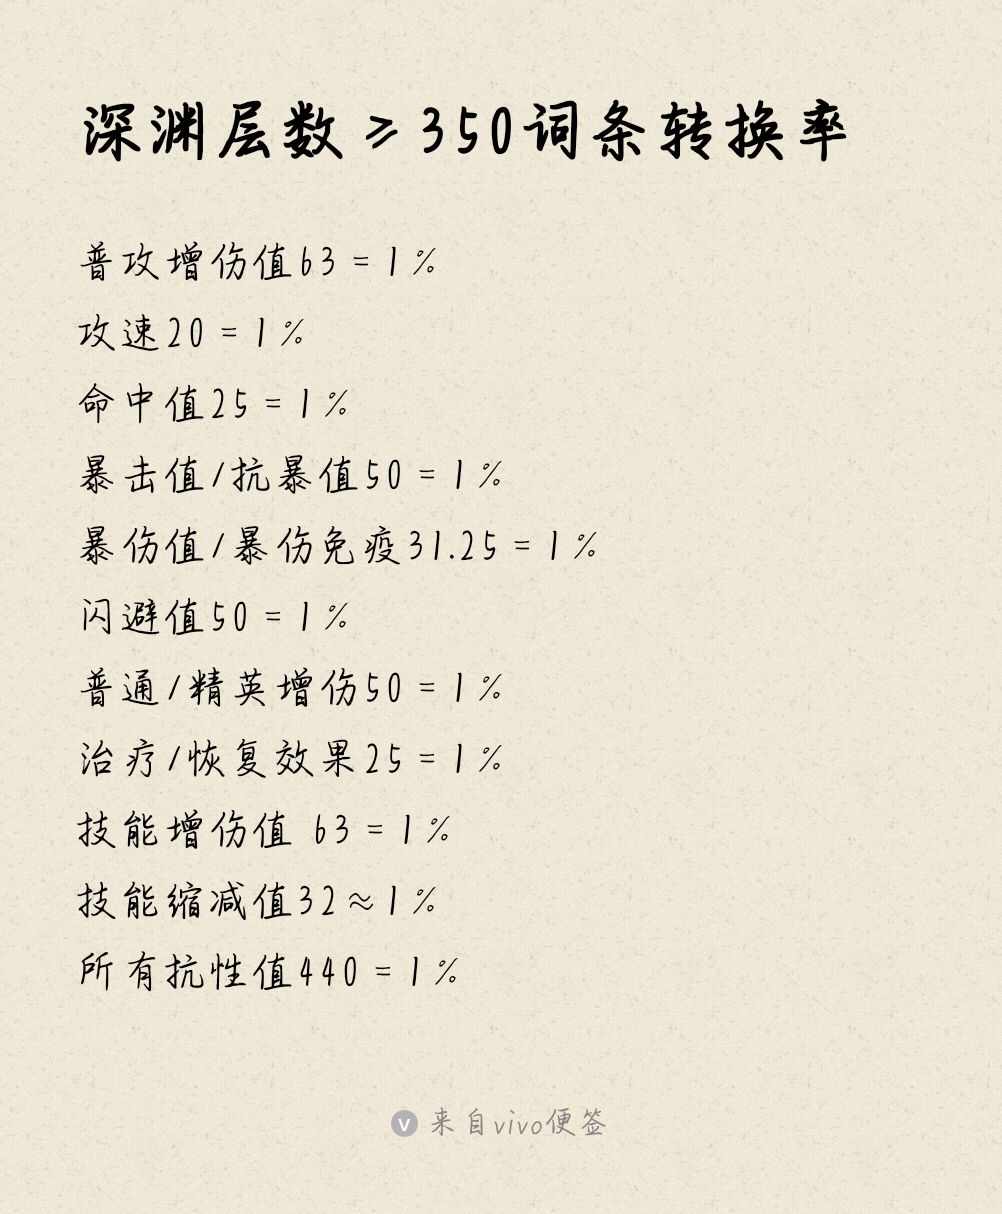 深渊层数≥350词条转换率
普攻增伤值63=1%
攻速20=1%
命中值25=1%
暴击值/抗暴值50=1%
暴伤值/暴伤免疫31.25=1%
闪避值50=1%
普通/精英增伤50=1%
治疗/恢复效果25=1%
技能增伤值 63=1%
技能缩减值32≈1%
所有抗性值440=1%
V 来自vivo便签